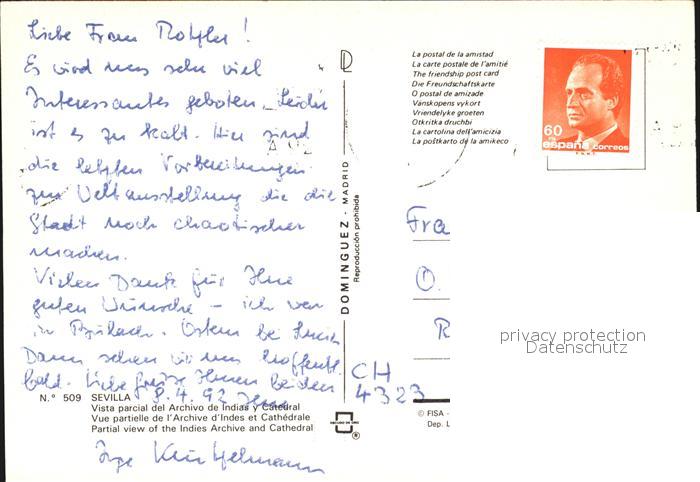 Liebe Frau
Es wird uns sehr viel
Interessantes geboten. Leider
ist es zu kalt. Hier sind
die letzten Vorbereitungen
zur Weltausstellung die die
Stadt noch chaotischer
machen.
Vielen Dank für Ihre
guten Wünsche – ich war
in Bülach. Ostern bei
Dann sehen wir uns hoffentl.
bald. Liebe Grüsse Ihnen beiden
8.4.92 Ihre
Inge
N.° 509 SEVILLA
Vista parcial del Archivo de Indias y Catedral
Vue partielle de l'Archive d'Indes et Cathédrale
Partial view of the Indies Archive and Cathedral
DOMINGUEZ - MADRID
Reproducción prohibida
La postal de la amistad
La carte postale de l'amitié
The friendship post card
Die Freundschaftskarte
O postal de amizade
Vänskapens vykort
Vriendelyke groeten
Otkritka druchbi
La cartolina dell'amicizia
La poŝtkarto de la amikeco
60
españa correos
Fra
O.
R
CH
4323
© FISA -
Dep. L
privacy protection
Datenschutz